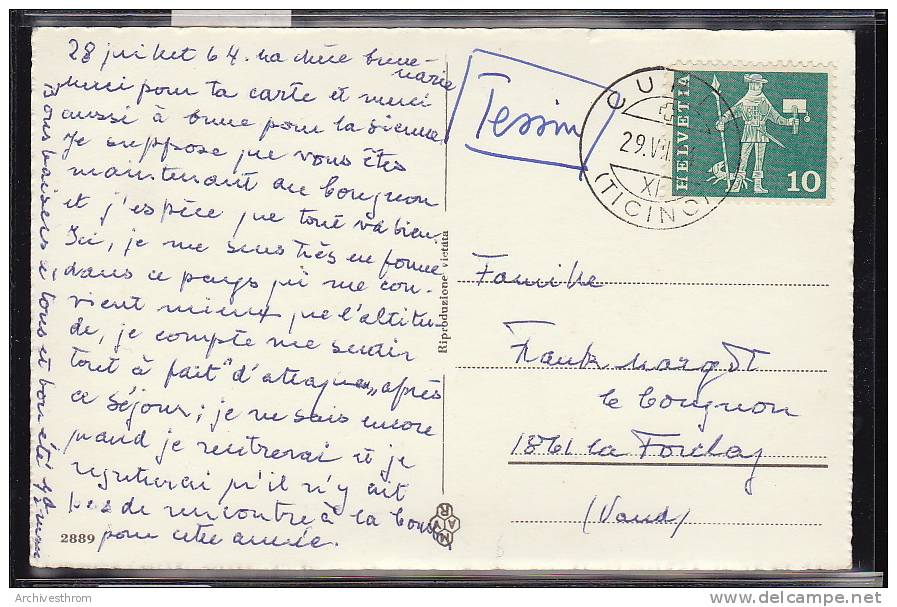 28 juillet 64. Ma chère Anne-
Marie
Merci pour ta carte et merci
aussi à pour la sienne
Je suppose que vous êtes
maintenant au Cougnon
et j'espère que tout va bien.
Ici, je me sens très en forme
dans ce pays qui me con-
vient mieux que l'altitu-
de, je compte me sentir
tout à fait "d'attaque" après
ce séjour; je ne sais encore
quand je rentrerai et je
regretterai qu'il n'y ait
pas de rencontre à la
pour cette année.
Bons baisers à tous et bon été
2889
Riproduzione vietata
NAVR
Tessin
29.VII
XI
(TICINO)
HELVETIA
10
Famille
Frank Margot
le Cougnon
1861 La Forclaz
(Vaud)
Archivesthrom
www.delcampe.net